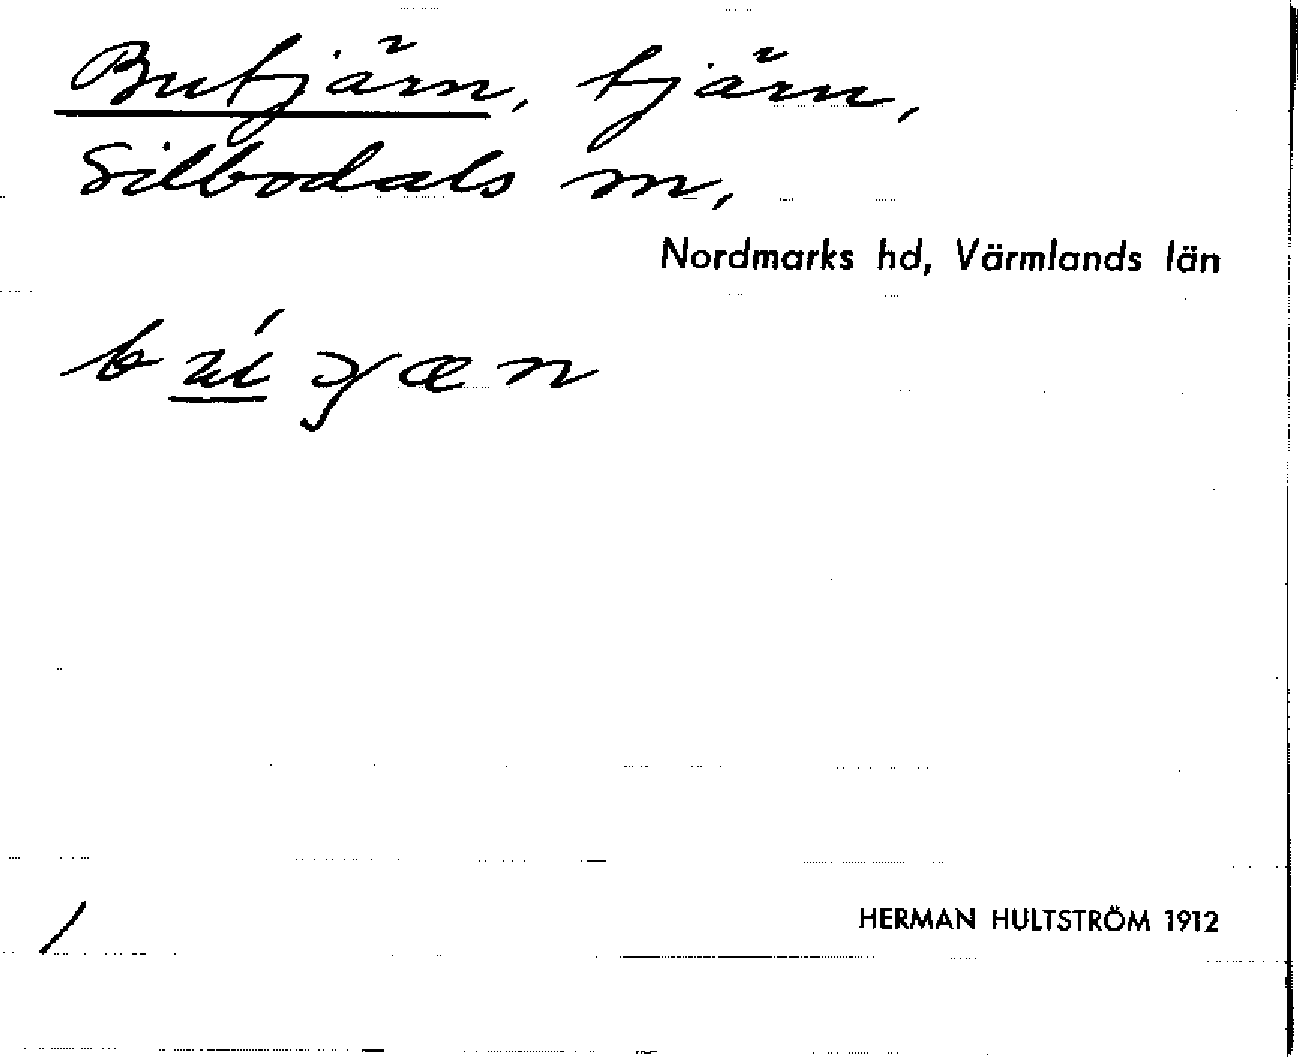 Butjärn, tjärn,
Silbodals sn,
Nordmarks hd, Värmlands län
HERMAN HULTSTRÖM 1912